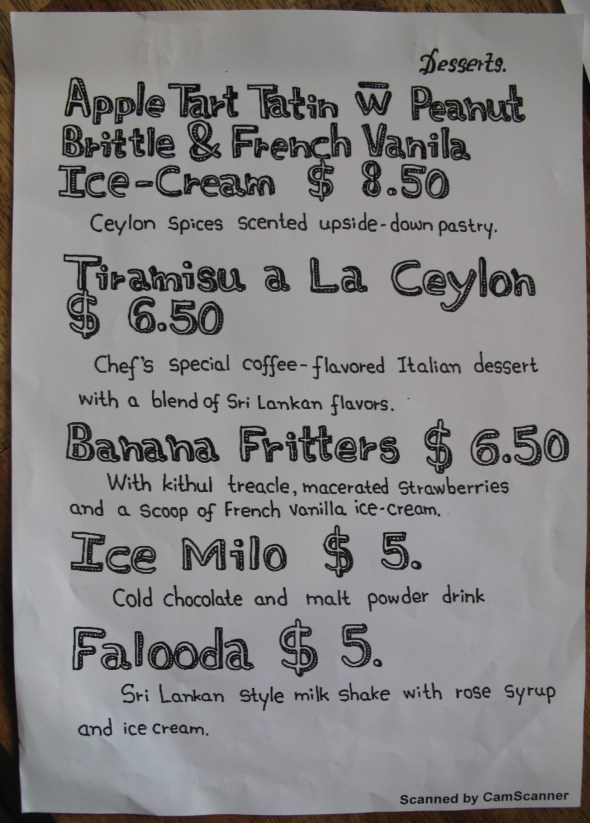 Desserts.
Apple Tart Tatin w̅ Peanut
Brittle & French Vanila
Ice-Cream $ 8.50
Ceylon Spices scented upside-down pastry.
Tiramisu a La Ceylon
$ 6.50
Chef's special coffee-flavored Italian dessert
with a blend of Sri Lankan flavors.
Banana Fritters $ 6.50
With kithul treacle, macerated Strawberries
and a scoop of French vanilla ice-cream.
Ice Milo $ 5.
Cold chocolate and malt powder drink
Falooda $ 5.
Sri Lankan style milk shake with rose syrup
and ice cream.
Scanned by CamScanner